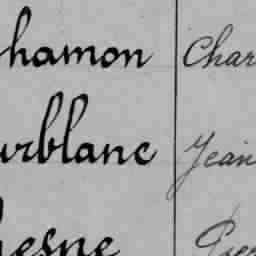 hamon Char
urblanc Jean
hesne Pier